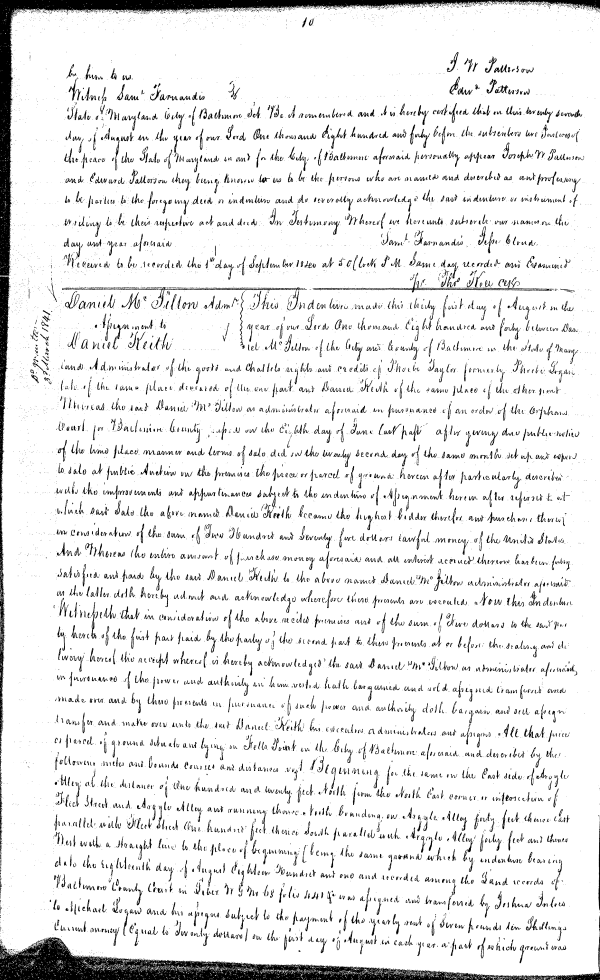 10
J. W Patterson
by him to us
Edwd Patterson
Witness Saml Farnandis
State of Maryland City of Baltimore Sct Be it remembered and it is hereby certified that on this twenty seventh
day of August in the year of our Lord One thousand Eight hundred and forty before the subscribers two Justices of
the peace of the State of Maryland in and for the City of Baltimore aforesaid personally appear Joseph W Patterson
and Edward Patterson they being known to us to be the persons who are named and described as and professing
to be parties to the foregoing deed or indenture and do severally acknowledge the said indenture or instrument of
writing to be their respective act and deed. In Testimony Whereof we hereunto subscribe our names on the
day and year aforesaid
Saml Farnandis Jesse Cloud
Received to be recorded the 1st day of September 1840 at 5 OClock P.M. Same day recorded and Examined
pr Thos Kell Clk
Daniel Mc Jilton Admr
Assignment to
Daniel Keith
3d March 1841
This Indenture made this thirty first day of August in the
year of our Lord One thousand Eight hundred and forty between Dan
iel Mc Jilton of the City and County of Baltimore in the State of Mary
land Administrator of the goods and Chattels rights and credits of Phoebe Taylor formerly Phoebe Logan
late of the same place deceased of the one part and Daniel Keith of the same place of the other part
Whereas the said Daniel Mc Jilton as administrator aforesaid in pursuance of an order of the Orphans
Court for Baltimore County passed on the Eighth day of June last past after giving due public notice
of the time place manner and terms of sale did on the twenty second day of the same month set up and expose
to sale at public Auction on the premises the piece or parcel of ground herein after particularly described
with the improvements and appurtenances subject to the indenture of Assignment herein after referred to at
which said Sale the above named Daniel Keith became the highest bidder therefor and purchaser thereof
in consideration of the sum of Two Hundred and Seventy five dollars lawful money of the United States
And Whereas the entire amount of purchase money aforesaid and all interest accrued thereon has been fully
satisfied and paid by the said Daniel Keith to the above named Daniel Mc Jilton administrator aforesaid
as the latter doth hereby admit and acknowledge wherefore these presents are executed Now this Indenture
Witnesseth that in consideration of the above recited premises and of the sum of Five dollars to the said par
ty hereto of the first part paid by the party of the second part to these presents at or before the sealing and de
livery hereof the receipt whereof is hereby acknowledged the said Daniel Mc Jilton as administrator aforesaid,
in pursuance of the power and authority in him vested hath bargained and sold assigned transferred and
made over and by these presents in pursuance of such power and authority doth bargain and sell assign
transfer and make over unto the said Daniel Keith his executors administrators and assigns All that piece
or parcel of ground situate and lying in Fells Point in the City of Baltimore aforesaid and described by the
following metes and bounds courses and distances vizt Beginning for the same on the East side of Argyle
Alley at the distance of One hundred and twenty feet North from the North East corner or intersection of
Fleet Street and Argyle Alley and running thence North bounding on Argyle Alley forty feet thence East
parallel with Fleet Street One hundred feet thence South parallel with Argyle Alley forty feet and thence
West with a straight line to the place of beginning (being the same ground which by indenture bearing
date the Eighteenth day of August Eighteen Hundred and one and recorded among the Land records of
Baltimore County Court in Liber W G No 68 folio 441 &c was assigned and transferred by Joshua Inloes
to Michael Logan and his assigns subject to the payment of the yearly rent of Seven pounds ten Shillings
current money (Equal to Twenty dollars) on the first day of August in each year a part of which ground was